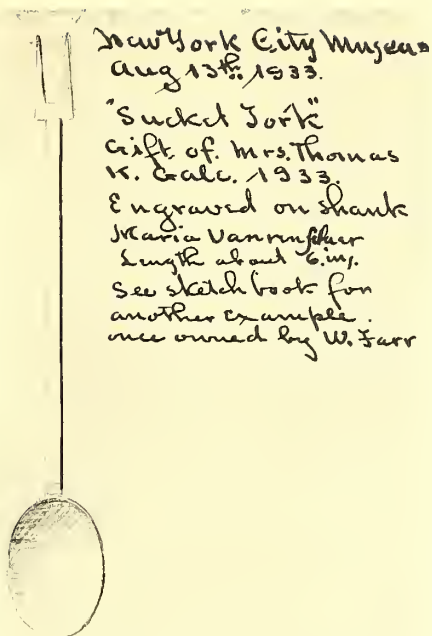 New York City Museum
Aug 13th, 1933.
"Sucket Fork"
Gift. of. Mrs. Thomas
K. Gale. 1933.
Engraved on shank
Maria Vanrenslaer
Length about 6. in.
See sketch book for
another example.
once owned by W. Farr